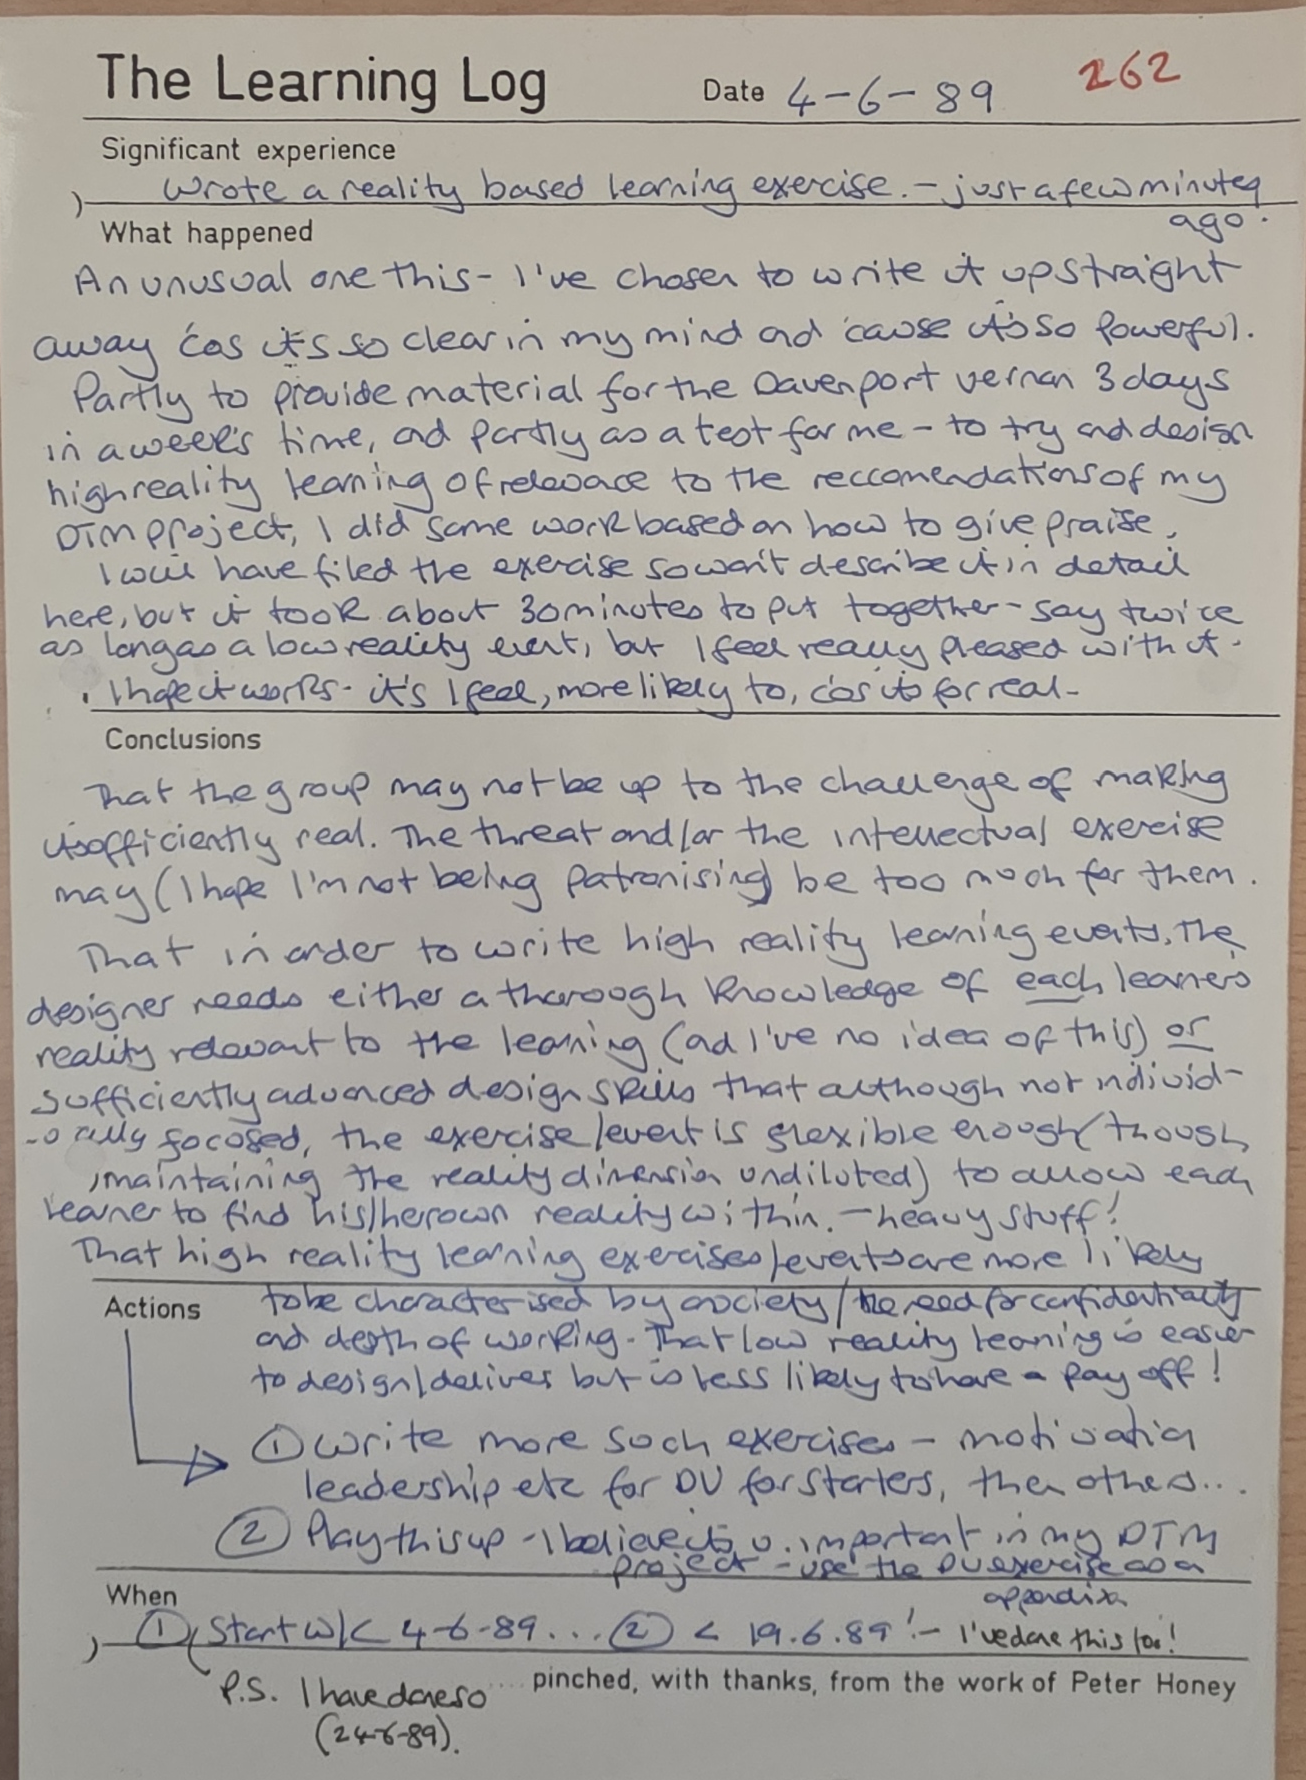 The Learning Log Date 4-6-89 262
Significant experience
Wrote a reality based learning exercise. - just a few minutes
ago.
What happened
An unusual one this - I've chosen to write it up straight
away 'cos it's so clear in my mind and 'cause it's so powerful.
Partly to provide material for the Davenport Vernon 3 days
in a week's time, and partly as a test for me - to try and design
high reality learning of relevance to the reccomendations of my
DTM project, I did some work based on how to give praise.
I will have filed the exercise so won't describe it in detail
here, but it took about 30 minutes to put together - say twice
as long as a low reality event, but I feel really pleased with it.
I hope it works - it's I feel, more likely to, cos its for real -
Conclusions
That the group may not be up to the challenge of making
it sufficiently real. The threat and/or the intellectual exercise
may (I hope I'm not being patronising) be too much for them.
That in order to write high reality learning events, the
designer needs either a thorough knowledge of each learners
reality relevant to the learning (and I've no idea of this) or
sufficiently advanced design skills that although not individ-
-ually focused, the exercise/event is flexible enough (though
maintaining the reality dimension undiluted) to allow each
learner to find his/her own reality within. - heavy stuff!
That high reality learning exercises/events are more likely
Actions to be characterised by anxiety/the need for confidentiality
and depth of working. That low reality learning is easier
to design/deliver but is less likely to have a pay off!
① Write more such exercises - motivation
leadership etc for DV for starters, then others...
② Play this up - I believe its v. important in my DTM
project - use the DV exercise as an
appendix
When
① Start w/c 4-6-89... ② < 19.6.89! - I've done this too!
P.S. I have done so pinched, with thanks, from the work of Peter Honey
(24-6-89).